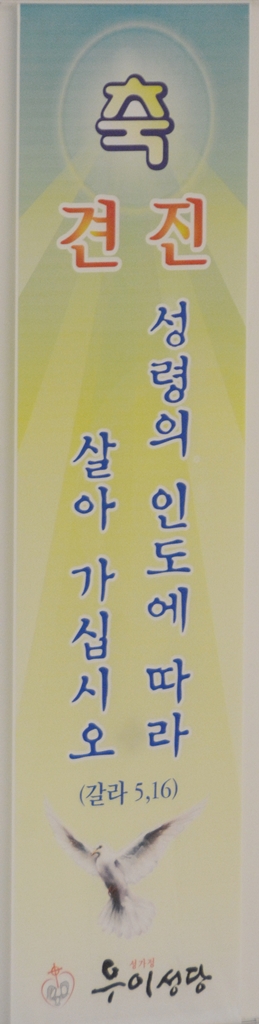 축
견 진
성령의 인도에 따라
살아 가십시오
(갈라 5,16)
성가정
우이성당